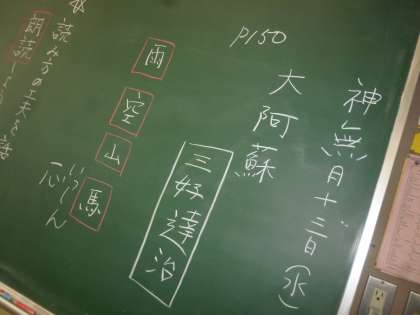 神無月十三日(水)
P150
大阿蘇
三好達治
雨
空
山
馬
いっしん
読み方の工夫を話
朗読し